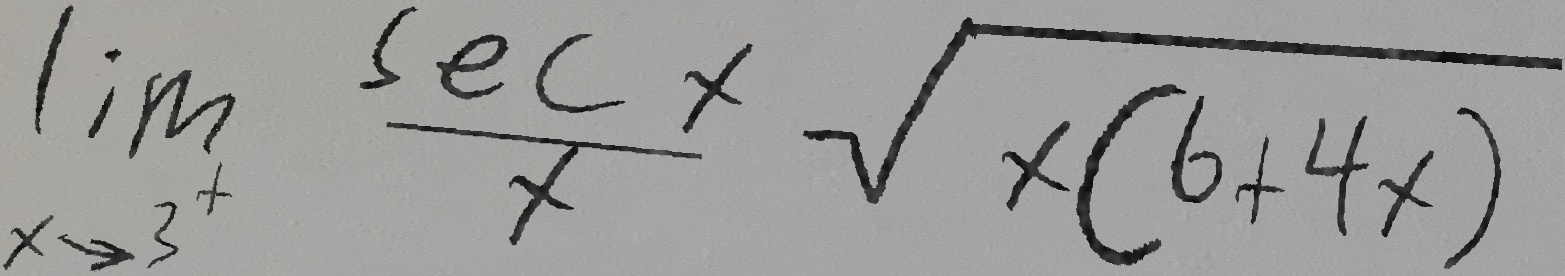 \lim_{x \to 3^+} \frac{\sec x}{x} \sqrt{x(6+4x)}